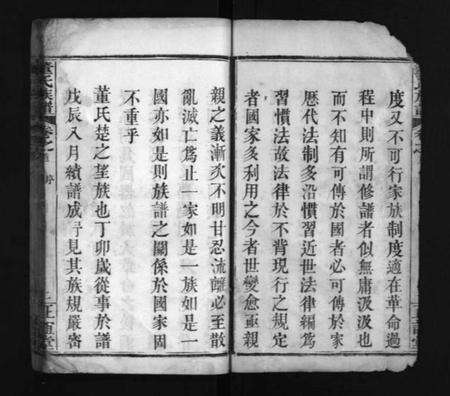 度又不可行家族制度適在革命過
程中則所謂修譜者似無庸汲汲也
而不知有可傳於國者必可傳於家
歷代法制多沿慣習近世法律編爲
習慣法故法律於不背現行之規定
者國家多利用之今者世變愈亟親
親之義漸次不明甘忍流離必至散
亂滅亡爲止一家如是一族如是一
國亦如是則族譜之關係於國家固
不重乎
董氏楚之望族也丁卯歲從事於譜
戊辰八月續譜成予見其族規嚴密
董氏族譜
卷之首